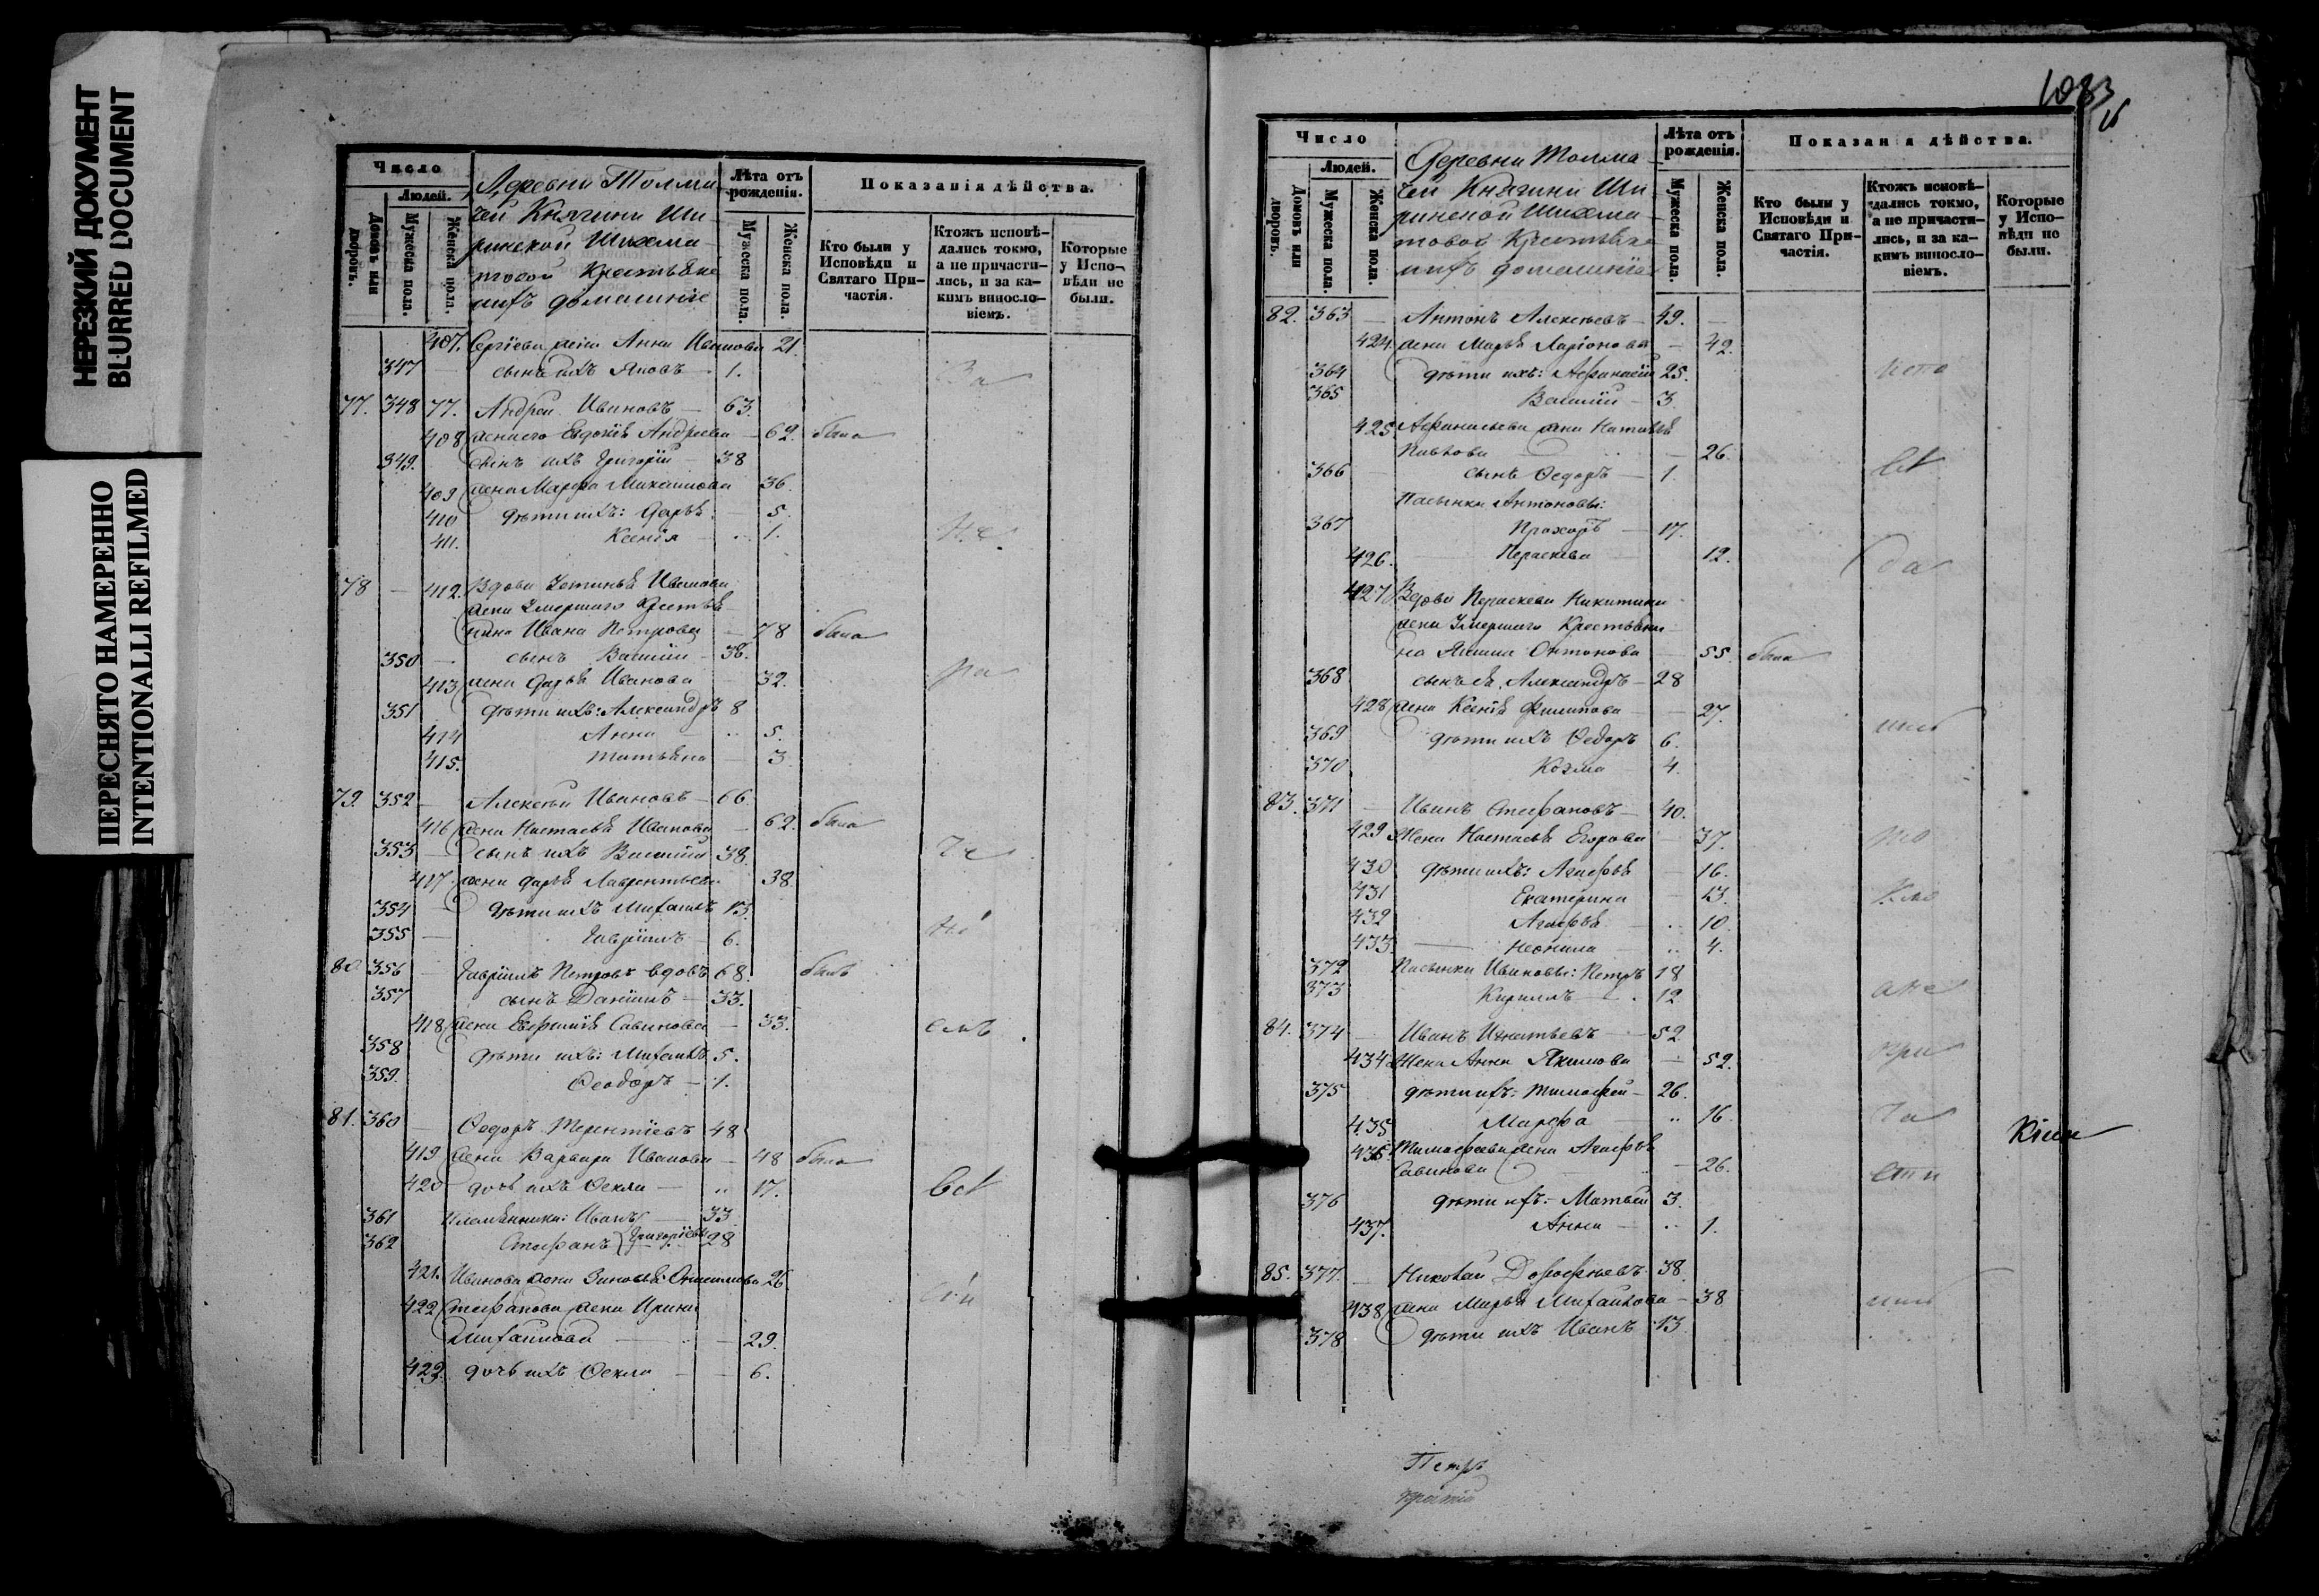 НЕРЕЗКИЙ ДОКУМЕНТ
BLURRED DOCUMENT
ПЕРЕСНЯТО НАМЕРЕННО
INTENTIONALLI REFILMED
Число
Людей.
Домовъ или дворовъ.
Мужеска пола.
Женска пола.
Деревни Толма
чей Княгини Ши
ринской Шихма
товой Крестьяне
ихъ домашніе
Лѣта отъ рожденія.
Мужеска пола.
Женска пола.
Показанія дѣйства.
Кто были у Исповѣди и Святаго При-
частія.
Ктожъ исповѣ-
дались токмо, а не причасти-
лись, и за ка-
кимъ винносло-
віемъ.
Которые у Испо-
вѣди не были.
407. Сергіева жена Анна Иванова 21.
347 — сынъ ихъ Яковъ — 1.
77. 348 77. Андрей Ивановъ — 63.
408 жена его Евдокія Андреева — 62. была
349. Сынъ ихъ Григорій — 38
409 жена Марфа Михаилова 36.
410 дѣти ихъ: Дарья — 5.
411. Ксенія 1.
78 — 412. Вдова Устинья Иванова
жена Умершаго Крестья
нина Ивана Петрова — 78 была
350 — сынъ Василій — 36.
413 жена Дарья Иванова 32.
351 дѣти ихъ: Александръ 8
414 Анна 5.
415. Татьяна — 3
79. 352 — Алексѣй Ивановъ — 66
416 жена Настасья Иванова — 62. была
353 — сынъ ихъ Василій 38.
417 жена Дарья Лаврентьева 38.
354 дѣти ихъ Михаилъ 13.
355 — Гавріилъ — 6.
80 356 — Гавріилъ Петровъ вдовъ 68. былъ
357 сынъ Даніилъ — 33.
418 жена Евфимія Савинова — 33.
358 дѣти ихъ: Михаилъ 5.
359. Ѳеодоръ — 1.
81. 360 Ѳедоръ Терентіевъ 48
419 жена Варвара Иванова — 48 была
420 дочь ихъ Ѳекла — 17.
361 племянники: Иванъ 33
362 Стефанъ Григорьевы 28
421. Иванова жена Зиновья Онисимова 26
422 Стефанова жена Ирина
Михаилова — 29.
423. дочь ихъ Ѳекла — 6.
1083
Число
Людей.
Домовъ или дворовъ.
Мужеска пола.
Женска пола.
Деревни Толма
чей Княгини Ши
ринской Шихма
товой Крестьяне
ихъ домашніе
Лѣта отъ рожденія.
Мужеска пола.
Женска пола.
Показанія дѣйства.
Кто были у Исповѣди и Святаго При-
частія.
Ктожъ исповѣ-
дались токмо, а не причасти-
лись, и за ка-
кимъ винносло-
віемъ.
Которые у Испо-
вѣди не были.
82. 363 — Антонъ Алексѣевъ — 49. —
424. жена Марья Ларіонова — 42.
364 дѣти ихъ: Афанасій 25.
365 Василій — 3
425. Афанасьева жена Наталья
Павлова — 26.
366 — сынъ Ѳедоръ — 1.
Пасынки Антоновы:
367 Прохоръ — 17.
426. Параскева 12.
427 Вдова Параскева Никитина
жена Умершаго Крестьяни
на Якима Антонова 55. была
368 сынъ ея Александръ — 28
428 жена Ксенія Филипова — 27.
369 дѣти ихъ Ѳедоръ 6.
370 Козма 4.
83. 371 — Иванъ Стефановъ — 40.
429 Жена Настасья Егорова — 37.
430 дѣти ихъ: Агафья — 16.
431 Екатерина — 13.
432 Агафья — 10.
433 — Неонила 4.
372 Пасынки Ивановы: Петръ 18
373 Кириллъ — 12
84. 374 — Иванъ Игнатьевъ — 52
434 Жена Анна Якимова — 52.
375 дѣти ихъ: Тимофей — 26.
435 Марфа 16.
436. Тимофеева жена Агафья
Савинова — 26.
376 дѣти ихъ: Матвей 3.
437. Анна — 1.
85. 377. — Николай Дорофѣевъ 38.
438 жена Марья Михайлова — 38
378 дѣти ихъ Иванъ 13
Петръ